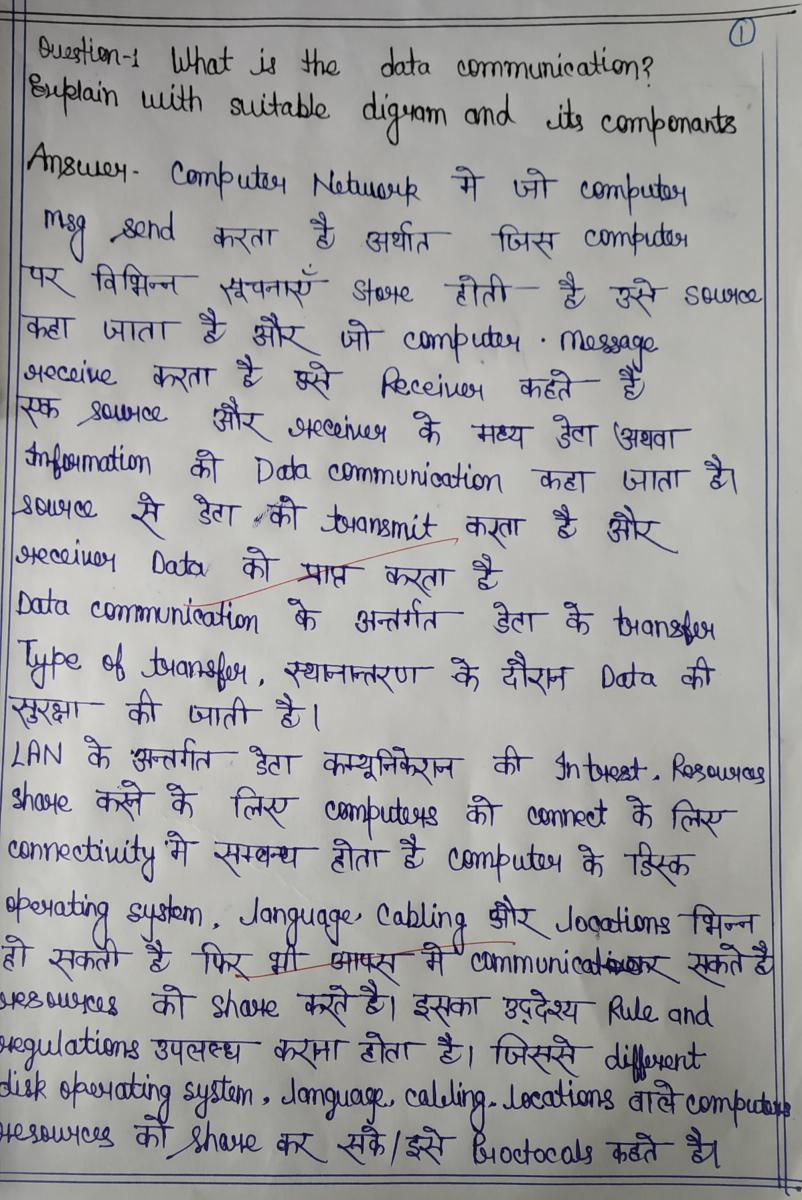 ①
Question-1 What is the data communication?
Explain with suitable digram and its componants
Answer- Computer Network मे जो computer
msg send करता है अर्थात जिस computer
पर विभिन्न सूचनाएँ store होती है उसे source
कहा जाता है और जो computer . message
receive करता है उसे Receiver कहते है
एक source और receiver के मध्य डेटा अथवा
Information को Data communication कहा जाता है।
source से डेटा को transmit करता है और
receiver Data को प्राप्त करता है
Data communication के अन्तर्गत डेटा के transfer
Type of transfer, स्थानान्तरण के दौरान Data की
सुरक्षा की जाती है।
LAN के अन्तर्गत डेटा कम्यूनिकेशन की Intrest. Resources
share करने के लिए computers को connect के लिए
connectivity मे सम्बन्ध होता है computer के डिस्क
operating system, language, Cabling और locations भिन्न
हो सकती है फिर भी आपस मे communication कर सकते है
resources को share करते है। इसका उद्देश्य Rule and
regulations उपलब्ध कराना होता है। जिससे different
disk operating system, language, cabling, locations वाले computers
resources को share कर सकें/इसे Proctocals कहते है।